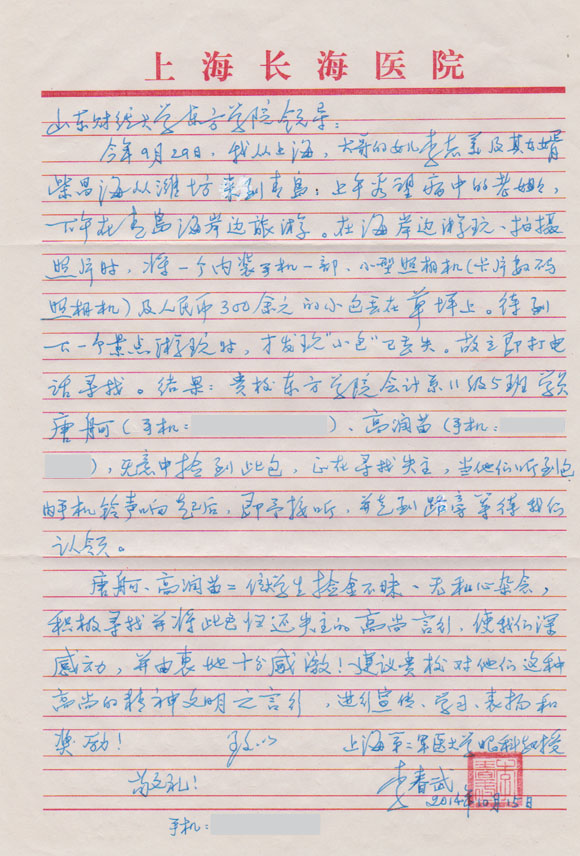 上海长海医院
山东财经大学东方学院领导：
今年9月29日，我从上海，大哥的女儿李志美及其女婿
柴昌海从潍坊来到青岛；上午看望病中的老姐，
下午在青岛海岸边旅游。在海岸边游玩、拍摄
照片时，将一个内装手机一部、小型照相机（卡片数码
照相机）及人民币300余元的小包丢在草坪上。待到
下一个景点游玩时，才发现“小包”已丢失。故立即打电
话寻找。结果：贵校东方学院会计系11级5班学员
唐舸（手机：），高润苗（手机：
），无意中捡到此包，正在寻找失主，当他们听到包
内手机铃声响起后，即予接听，并走到路旁等待我们
认领。
唐舸、高润苗二位学生拾金不昧、无私心杂念，
积极寻找并将此包归还失主的高尚言行，使我们深
感动，并由衷地十分感激！建议贵校对他们这种
高尚的精神文明之言行，进行宣传、学习、表扬和
奖励！ 致以 上海第二军医大学眼科教授
敬礼！ 李春武
2014年10月15日
手机：